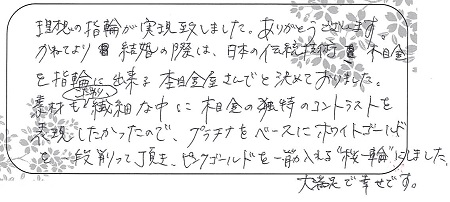 理想の指輪が実現致しました。ありがとうございます。
かねてより結婚の際は、日本の伝統技術 木目金
を指輪に出来る 杢目金屋さんでと決めておりました。
素材も繊細な中に木目金の独特のコントラストを
表現したかったので、プラチナをベースにホワイトゴールド
を一段削って頂き、ピンクゴールドを一筋入れる"桜一輪"にしました。
大満足で幸せです。